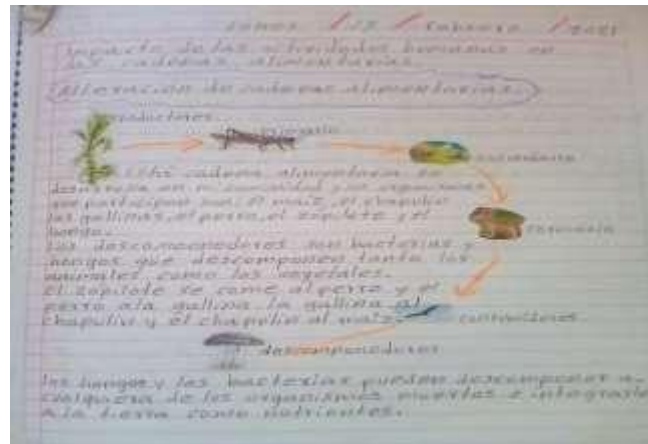 Lunes / 15 / febrero / 2021
Impacto de las actividades humanas en
las cadenas alimentarias.
Alteración de cadenas alimentarias.
productores
primario
secundario
Esta cadena alimentaria se
desarrolla en mi comunidad y los organismos
que participan son: el maíz, el chapulín
las gallinas, el perro, el zopilote y el
hongo.
terciario
Los descomponedores son bacterias y
hongos que descomponen tanto los
animales como los vegetales.
El zopilote se come al perro y el
perro a la gallina la gallina al
chapulín y el chapulín al maíz.
descomponedores
los hongos y las bacterias pueden descomponer a
cualquiera de los organismos muertos e integrarlo
a la tierra como nutrientes.